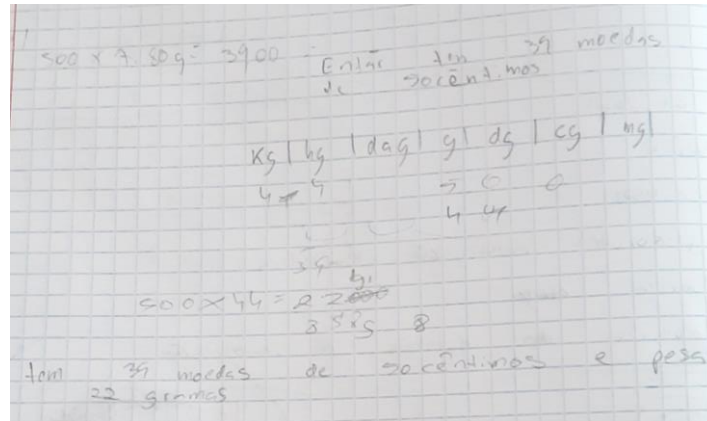 500 x 7.80g = 3900 Então tem 39 moedas
de 50 cêntimos
Kg | hg | dag | g | dg | cg | mg
4 4 5 0 0
4 4
39
500 x 44 = 22000
8
tem 39 moedas de 50 cêntimos e pesa
22 grammas